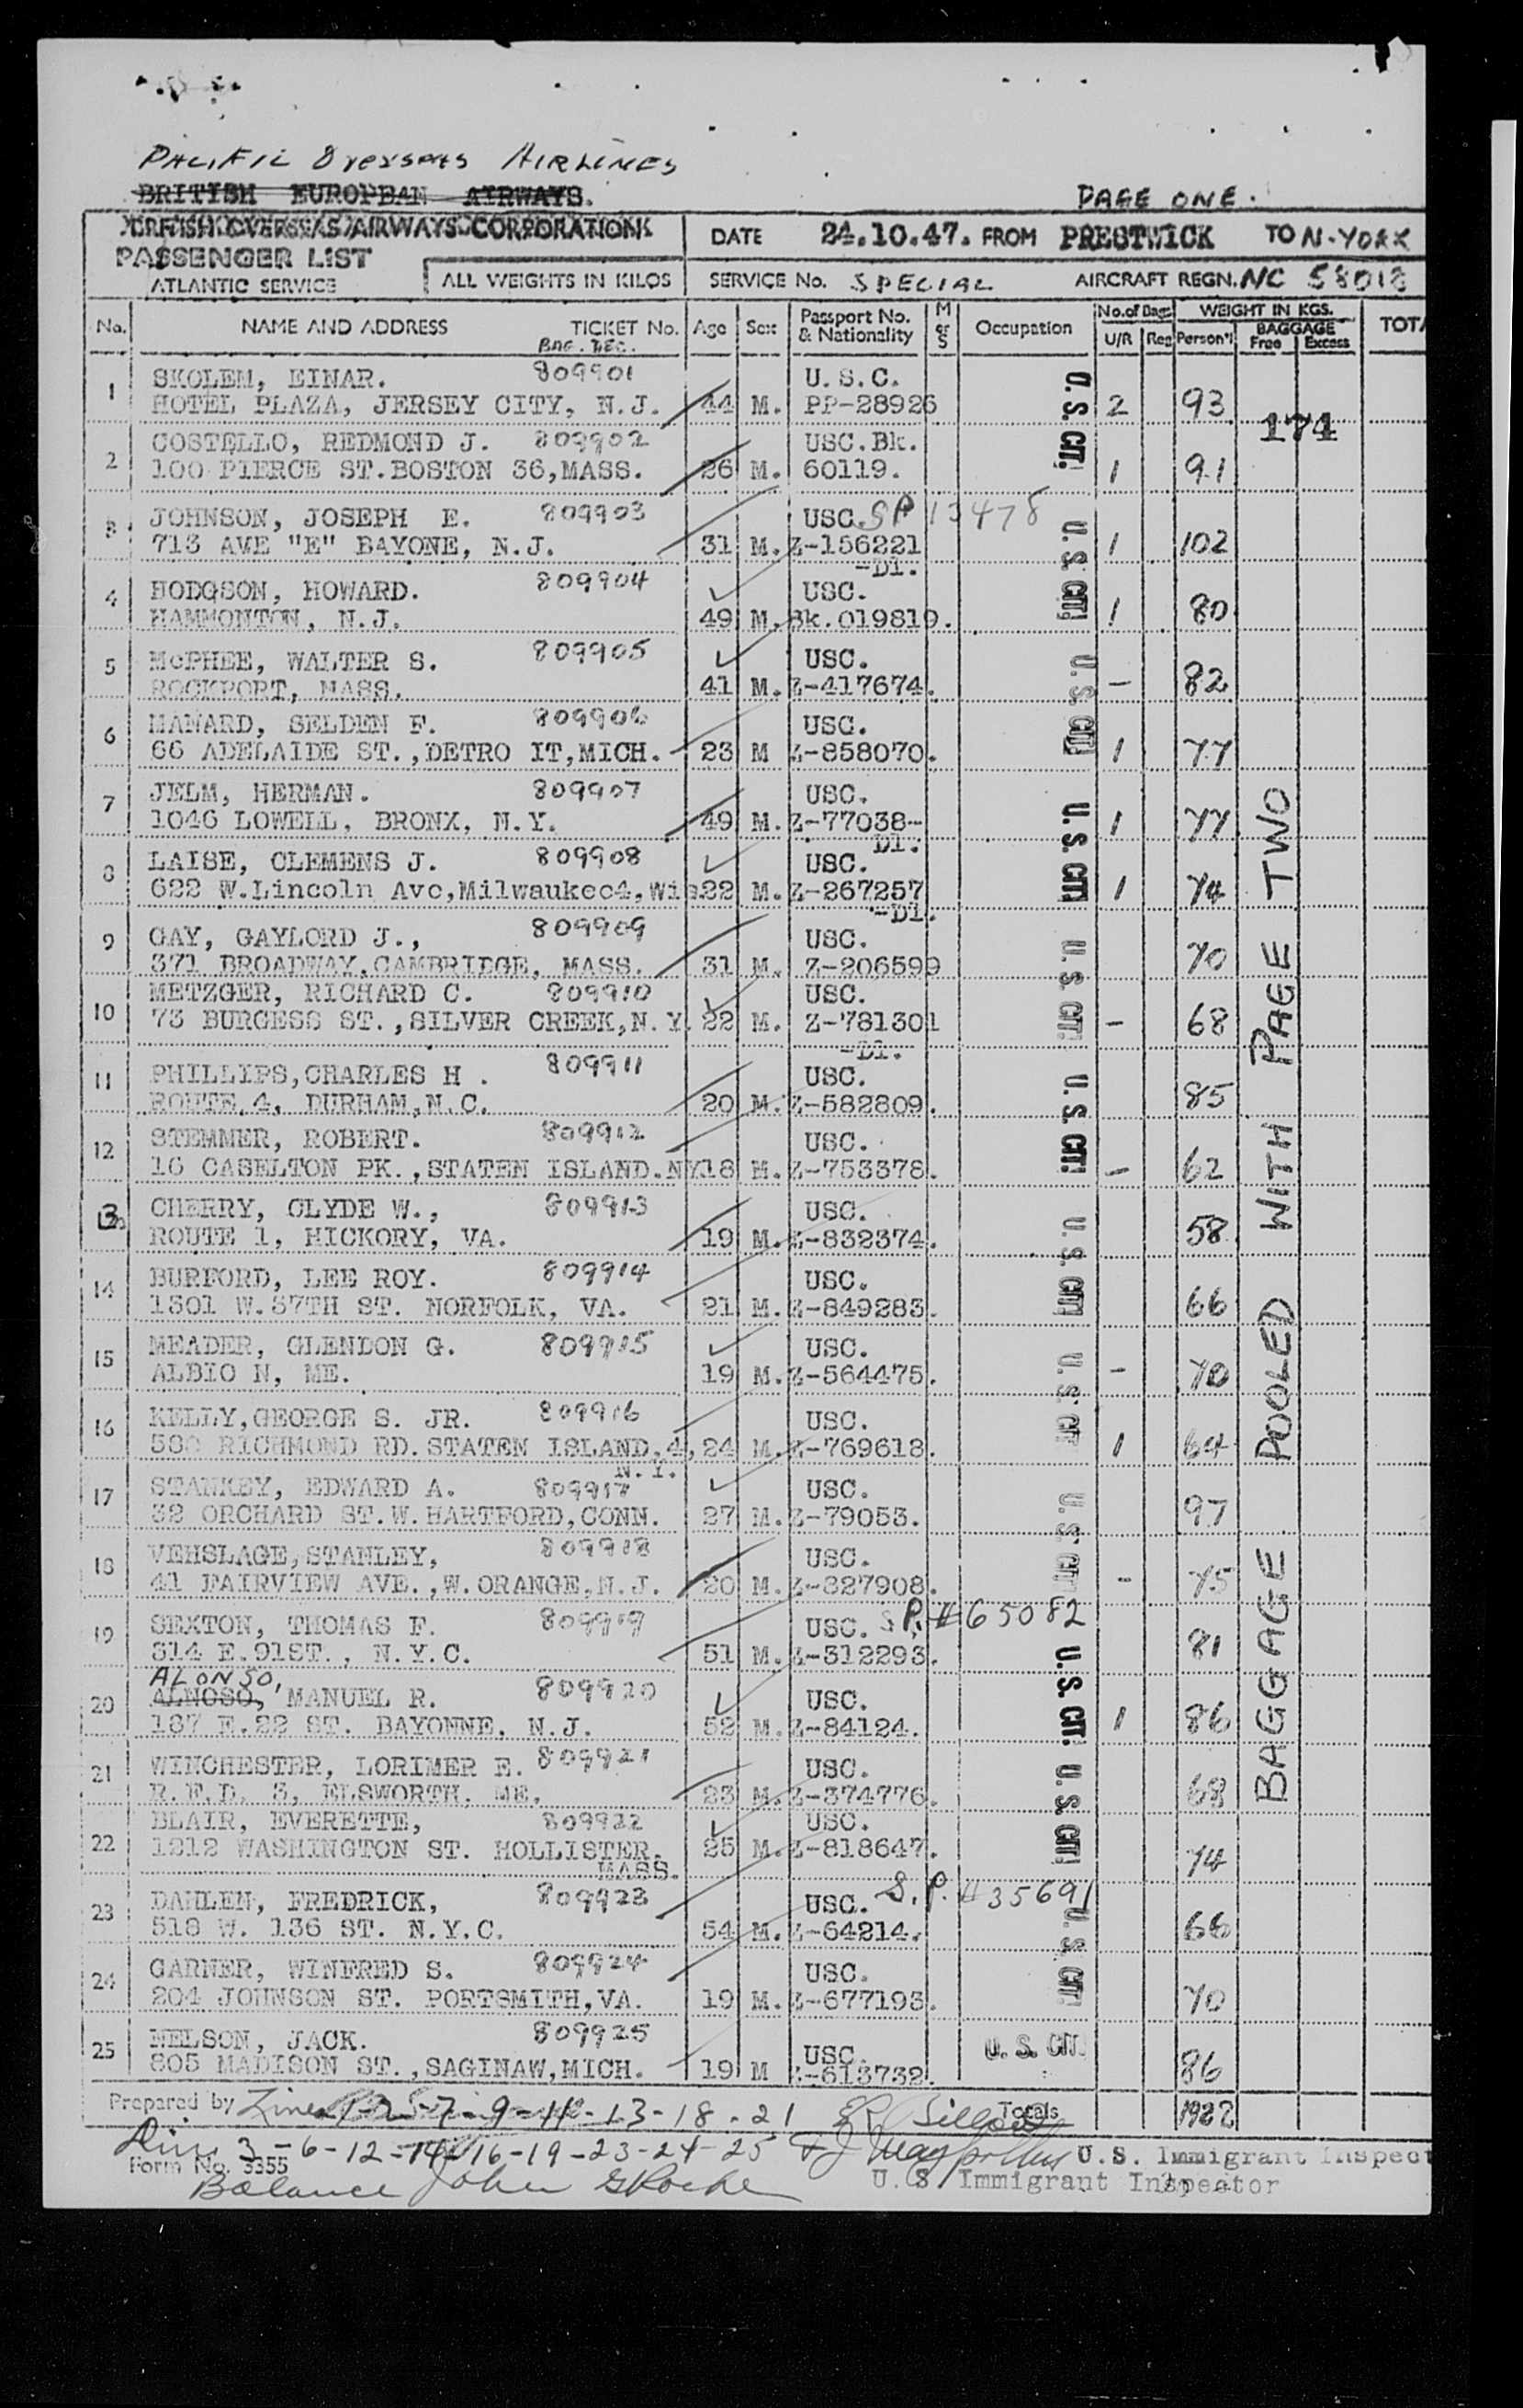 PACIFIC OVERSEAS AIRLINES
BRITISH EUROPEAN AIRWAYS.
PAGE ONE.
BRITISH OVERSEAS AIRWAYS CORPORATION
PASSENGER LIST
ATLANTIC SERVICE
ALL WEIGHTS IN KILOS
DATE 24.10.47. FROM PRESTWICK TO N-YORK
SERVICE No. SPECIAL AIRCRAFT REGN. NC 58018
No. NAME AND ADDRESS TICKET No. Age Sex Passport No. & Nationality M or S Occupation No. of Bags U/R Reg WEIGHT IN KGS. Person'l BAGGAGE Free Excess
BAG. DEC.
1 SKOLEM, EINAR. 809901 U.S.C. U.S. CIT.
HOTEL PLAZA, JERSEY CITY, N.J. 44 M. PP-28926 2 93
174
2 COSTELLO, REDMOND J. 809902 USC.Bk.
100 PIERCE ST.BOSTON 36,MASS. 26 M. 60119. 1 91
3 JOHNSON, JOSEPH E. 809903 USC. SP 13478 U.S. CIT.
713 AVE "E" BAYONE, N.J. 31 M. Z-156221 1 102
-D1.
4 HODGSON, HOWARD. 809904 USC.
HAMMONTON, N.J. 49 M. Bk.019819. 1 80
5 McPHEE, WALTER S. 809905 USC. U.S. CIT.
ROCKPORT, MASS. 41 M. Z-417674. - 82
6 MANARD, SELDEN F. 809906 USC.
66 ADELAIDE ST.,DETRO IT,MICH. 23 M Z-858070. 1 77
7 JELM, HERMAN. 809907 USC. U.S. CIT.
1046 LOWELL, BRONX, N.Y. 49 M. Z-77038- 1 77
D1.
8 LAISE, CLEMENS J. 809908 USC.
622 W.Lincoln Ave,Milwaukee4,Wis. 22 M. Z-267257 1 74
-D1.
9 GAY, GAYLORD J., 809909 USC. U.S. CIT.
371 BROADWAY,CAMBRIDGE, MASS. 31 M. Z-206599 70
10 METZGER, RICHARD C. 809910 USC.
73 BURGESS ST.,SILVER CREEK,N.Y. 22 M. Z-781301 - 68
-D1.
11 PHILLIPS,CHARLES H . 809911 USC. U.S. CIT.
ROUTE 4, DURHAM,N.C. 20 M. Z-582809. 85
12 STEMMER, ROBERT. 809912 USC.
16 CASELTON PK.,STATEN ISLAND.NY 18 M. Z-753378. - 62
13 CHERRY, CLYDE W., 809913 USC. U.S. CIT.
ROUTE 1, HICKORY, VA. 19 M. Z-832374. 58
14 BURFORD, LEE ROY. 809914 USC.
1301 W.37TH ST. NORFOLK, VA. 21 M. Z-849283. 66
15 MEADER, GLENDON G. 809915 USC. U.S. CIT
ALBIO N, ME. 19 M. Z-564475. - 70
16 KELLY,GEORGE S. JR. 809916 USC.
RICHMOND RD.STATEN ISLAND,4, 24 M. Z-769618. 1 64
N.Y.
17 STANKEY, EDWARD A. 809917 USC. U.S. CIT
32 ORCHARD ST.W.HARTFORD,CONN. 27 M. Z-79053. 97
18 VEHSLAGE,STANLEY, 809918 USC.
41 FAIRVIEW AVE.,W.ORANGE,N.J. 20 M. Z-327908. - 75
19 SEXTON, THOMAS F. 809919 USC. S.P. #65082
314 E.91ST., N.Y.C. 51 M. Z-312293. U.S. CIT. 81
ALONSO,
20 ALNOSO, MANUEL R. 809920 USC.
187 E.22 ST. BAYONNE, N.J. 52 M. Z-84124. 1 86
21 WINCHESTER, LORIMER E. 809921 USC. U.S. CIT
R.F.D. 3, ELSWORTH, ME. 23 M. Z-374776. 68
22 BLAIR, EVERETTE, 809922 USC.
1212 WASHINGTON ST. HOLLISTER. 25 M. Z-818647. 74
MASS.
23 DAHLEN, FREDRICK, 809923 USC. S.P. #35691
518 W. 136 ST. N.Y.C. 54 M. Z-64214. U.S. CIT. 66
24 GARNER, WINFRED S. 809924 USC.
204 JOHNSON ST. PORTSMITH,VA. 19 M. Z-677193. 70
25 NELSON, JACK. 809925 USC. U.S. CIT.
805 MADISON ST.,SAGINAW,MICH. 19 M Z-613732. 86
BAGGAGE POOLED WITH PAGE TWO
Prepared by Lines 1-2-5-7-9-11-13-18-21 Totals 1922
3-6-12-14-16-19-23-24-25 U.S. Immigrant Inspect
Form No. 3355
Balance John G Roche U.S Immigrant Inspector